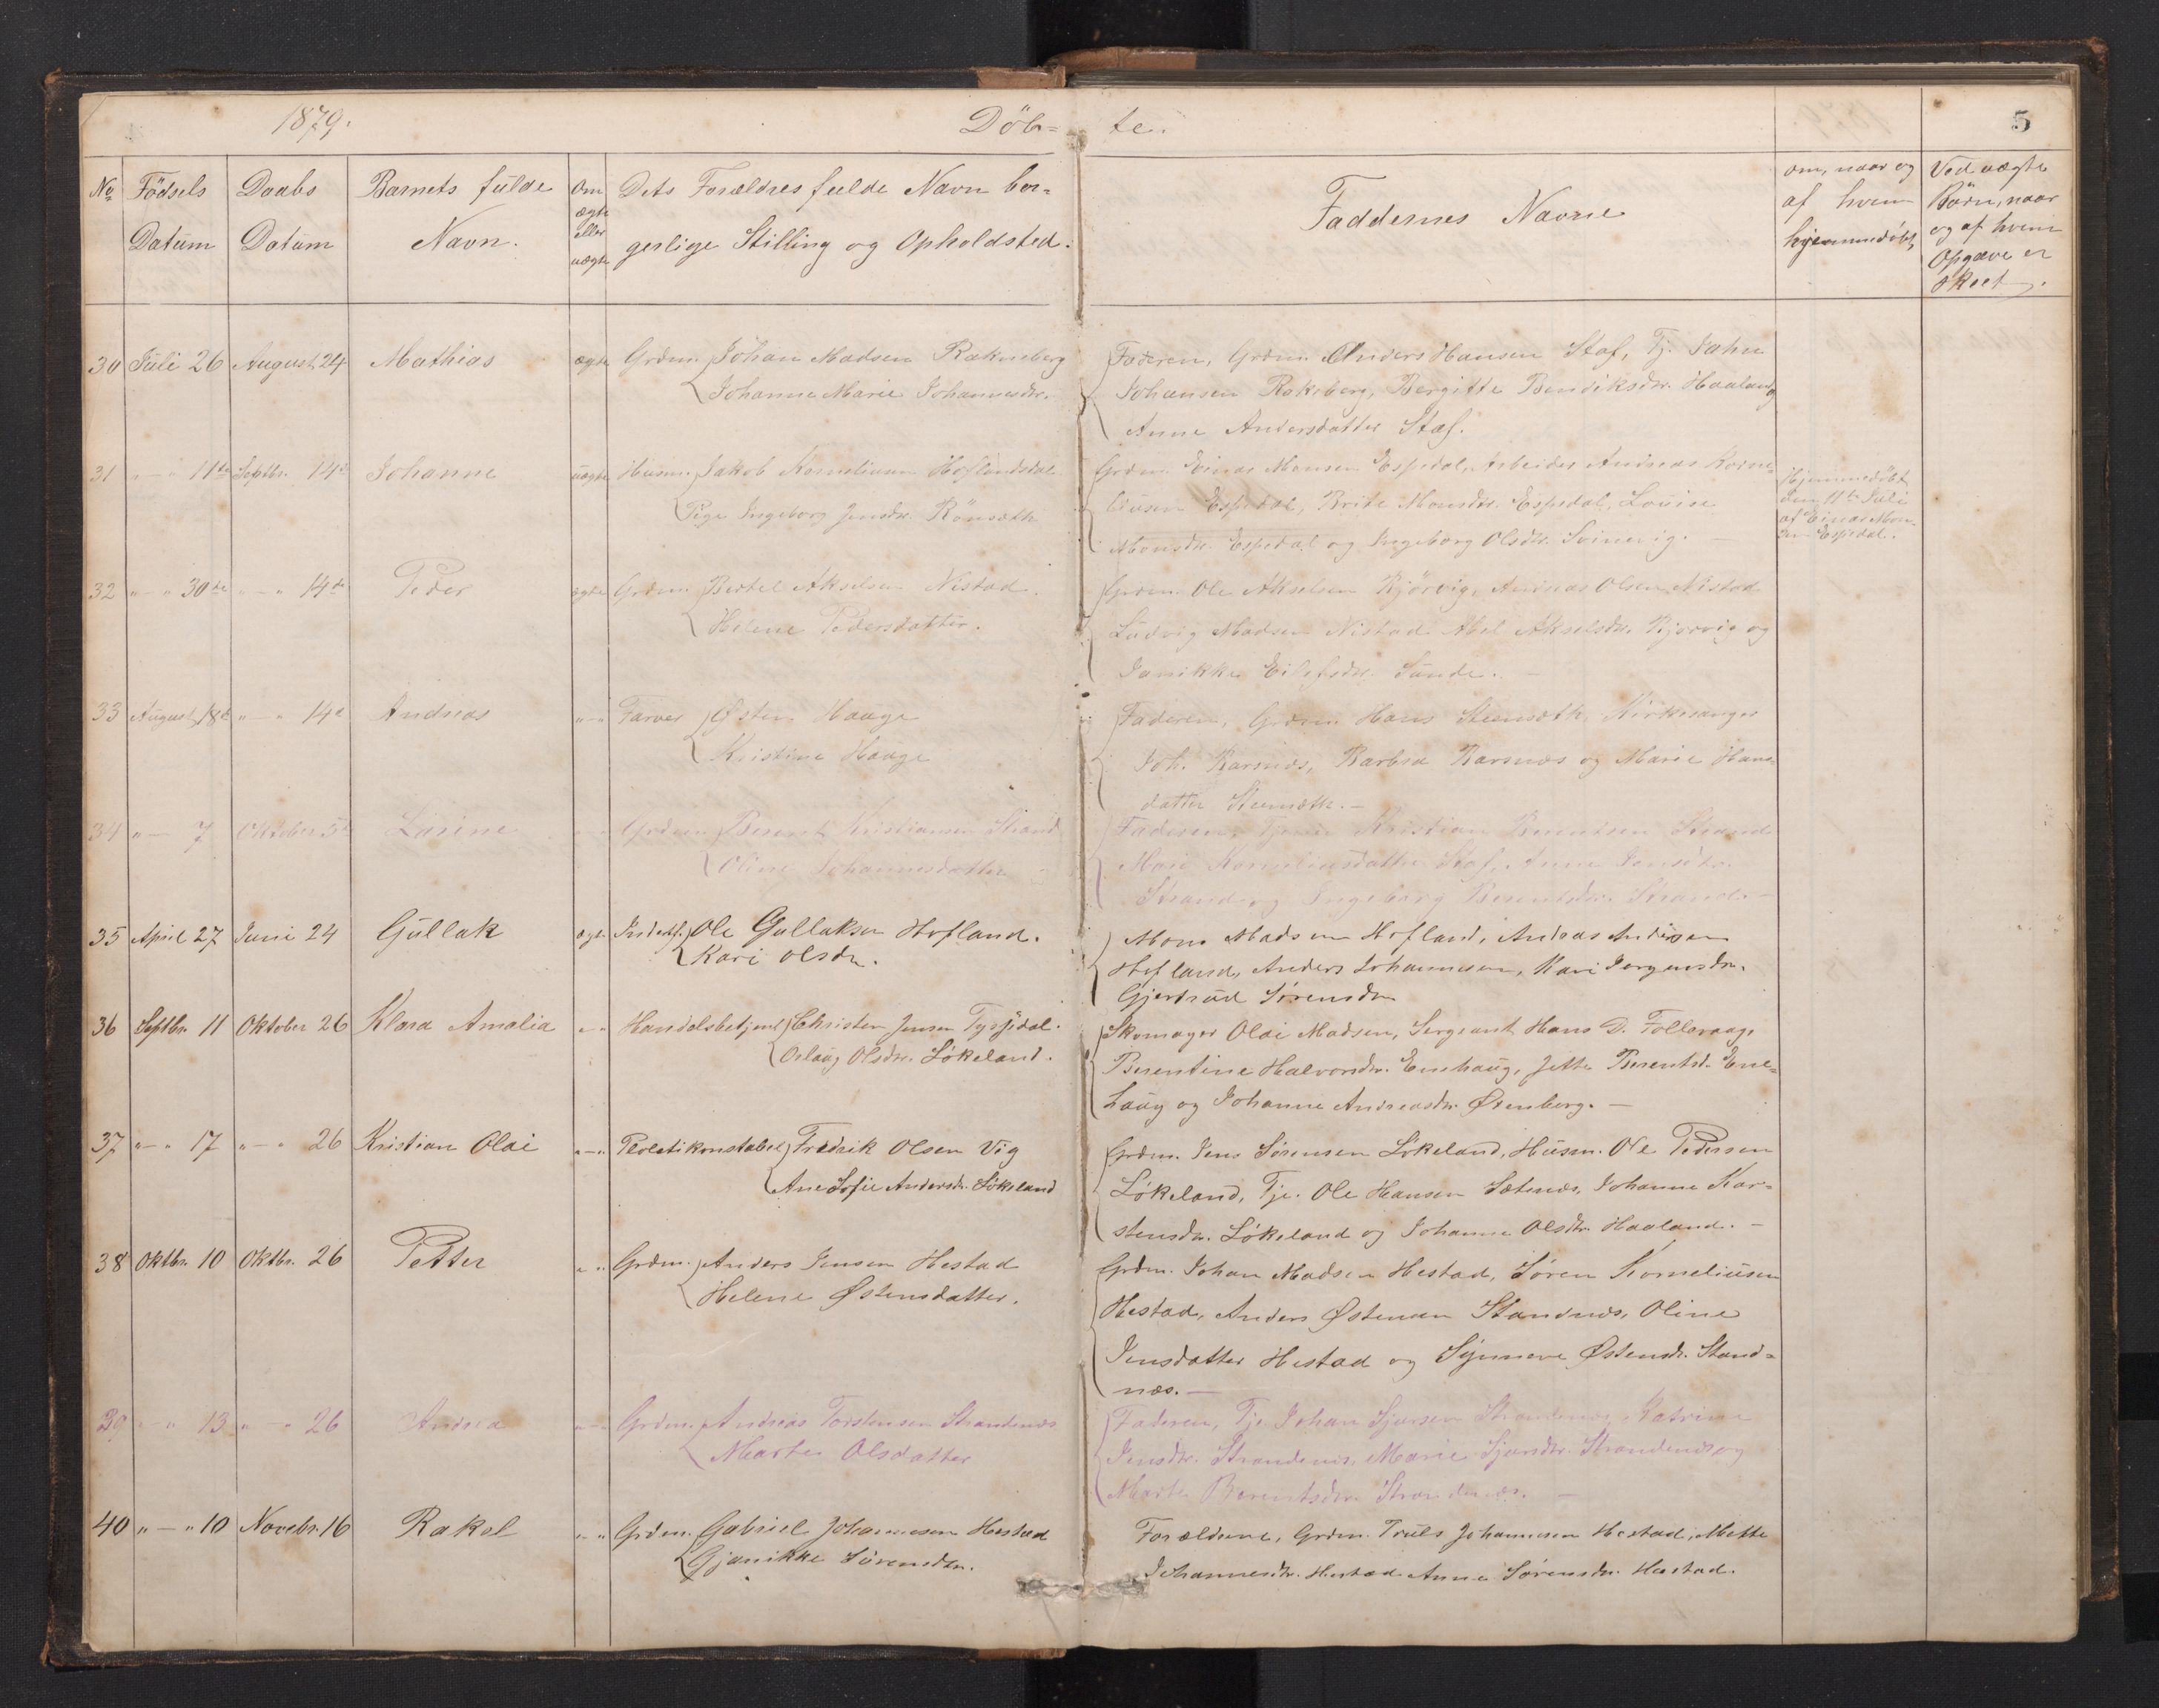 1879.
Döb=
te.
5
No
Födsels
Datum
Daabs
Datum
Barnets fulde
Navn.
Om
ægte
eller
uægte
Dets Forældres fulde Navn bor=
gerlige Stilling og Opholdsted.
Faddernes Navne
om, naar og
af hvem
hjemmedöbt,
Ved uægte
Börn, naar
og af hvem
Opgave er
skeet.
30 Juli 26 August 24 Mathias ægte Grdm. Johan Madsen Rakneberg
Johanne Marie Johannesdtr.
Faderen, Grdm. Anders Hansen Staf, Tj. Jahn
Johansen Rakeberg, Bergitte Bendiksdtr. Haaland og
Anne Andersdatter Staf.
31 " — " 11te Septbr. 14de Johanne uægte Husm. Jakob Korneliusen Hoflandsdal
Pige Ingeborg Jensdtr. Rönsæth
Grdm. Einar Monsen Espedal, Arbeider Andreas Korne=
liusen Espedal, Brite Monsdtr. Espedal, Louise
Monsdtr. Espedal og Ingeborg Olsdtr. Svinevig. —
Hjemmedöbt
den 11te Juli
af Einar Mon-
sen Espedal.
32 " — " 30te " — " 14de Peder ægte Grdm. Bertel Akselsen Nistad.
Helene Pedersdatter.
Grdm. Ole Akselsen Bjørvig, Andreas Olsen Nistad
Ludvig Madsen Nistad Abel Akselsdtr. Bjørvig og
Janikke Eilefsdtr. Sande. —
33 August 18de " — " 14de Andreas " — " Farver Østen Haage
Kristine Haage
Faderen, Grdm. Hans Steensæth, Kirkesanger
Joh. Barsnæs, Barbra Barsnæs og Marie Hans=
datter Steensæth. —
34 " — 7 Oktober 5te Larine " — " Grdm. Berent Kristiansen Strand
Oline Johannesdatter
Faderen, Tjener Kristian Berentsen Strand
Mari Korneliusdatter Staf, Anne Jensdtr.
Strand og Ingeborg Berentsdtr. Strand. —
35 April 27 Juni 24 Gullak ægte Inderst. Ole Gullaksen Hofland.
Kari Olsdtr.
Mons Madsen Hofland, Andreas Andersen
Hofland, Anders Johannesen, Kari Jørgensdtr.
Gjertrud Sørensdtr.
36 Septbr. 11 Oktober 26 Klara Amalia " — " Handelsbetjent Christen Jensen Tyssedal.
Oslaug Olsdtr. Løkeland.
Skomager Olai Madsen, Sergeant Hans D. Følleraag,
Berentine Halvorsdtr. Enehaug, Jette Berentsd. Ene=
haug og Johanne Andreasdtr. Østenberg. —
37 " — " 17 " — " 26 Kristian Olai " — " Politikonstabel Fredrik Olsen Vig
Ane Sofie Andersdtr. Løkeland
Grdm. Jens Sørensen Løkeland, Husm. Ole Pedersen
Løkeland, Tje. Ole Hansen Sætenæs, Johanne Kar=
stensdtr. Løkeland og Johanne Olsdtr. Haaland. —
38 Oktbr. 10 Oktbr. 26 Petter " — " Grdm. Anders Jensen Hestad
Helene Østensdatter.
Grdm. Johan Madsen Hestad, Søren Korneliusen
Hestad, Anders Østensen Standnæs, Oline
Jensdatter Hestad og Synneve Østensdtr. Stand=
næs. —
39 " — " 13 " — " 26 Andrea " — " Grdm. Andreas Torstensen Strandenæs
Marte Olsdatter
Faderen, Tje Johan Sjursen Strandenæs, Katrine
Jensdtr. Strandenæs, Marie Sjursdtr. Strandenæs og
Marte Berentsdtr. Strandenæs. —
40 " — " 10 Novebr. 16 Rakel " — " Grdm. Gabriel Johannesen Hestad
Gjanikke Sørensdtr.
Forældrene, Grdm. Truls Johannesen Hestad, Mette
Johannesdtr. Hestad Anne Sørensdtr. Hestad.